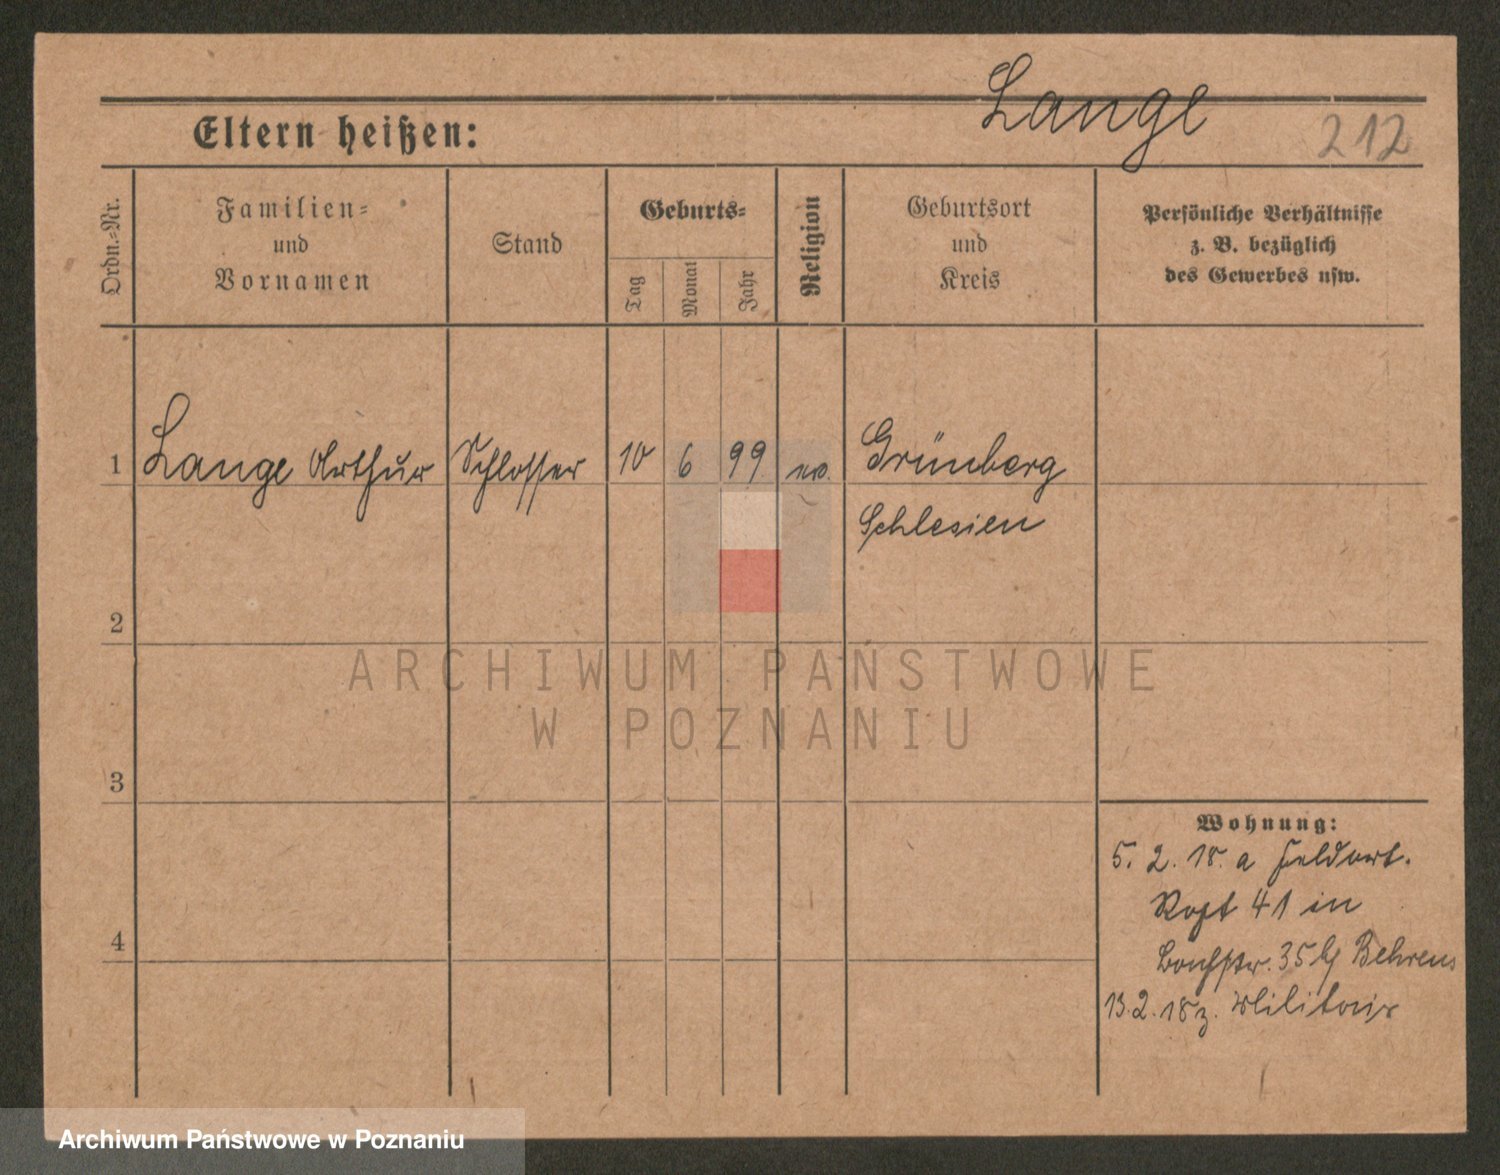 Lange
Eltern heißen:
212
Ordn.-Nr.
Familien-
und
Vornamen
Stand
Geburts-
Tag
Monat
Jahr
Religion
Geburtsort
und
Kreis
Persönliche Verhältnisse
z. B. bezüglich
des Gewerbes usw.
1 Lange Arthur Schlosser 10 6 99 ev. Grünberg
Schlesien
2
3
4
Wohnung:
5. 2. 18. a
41 in
35 Behrens
13. 2. 18 z. Militär
ARCHIWUM PAŃSTWOWE
W POZNANIU
Archiwum Państwowe w Poznaniu